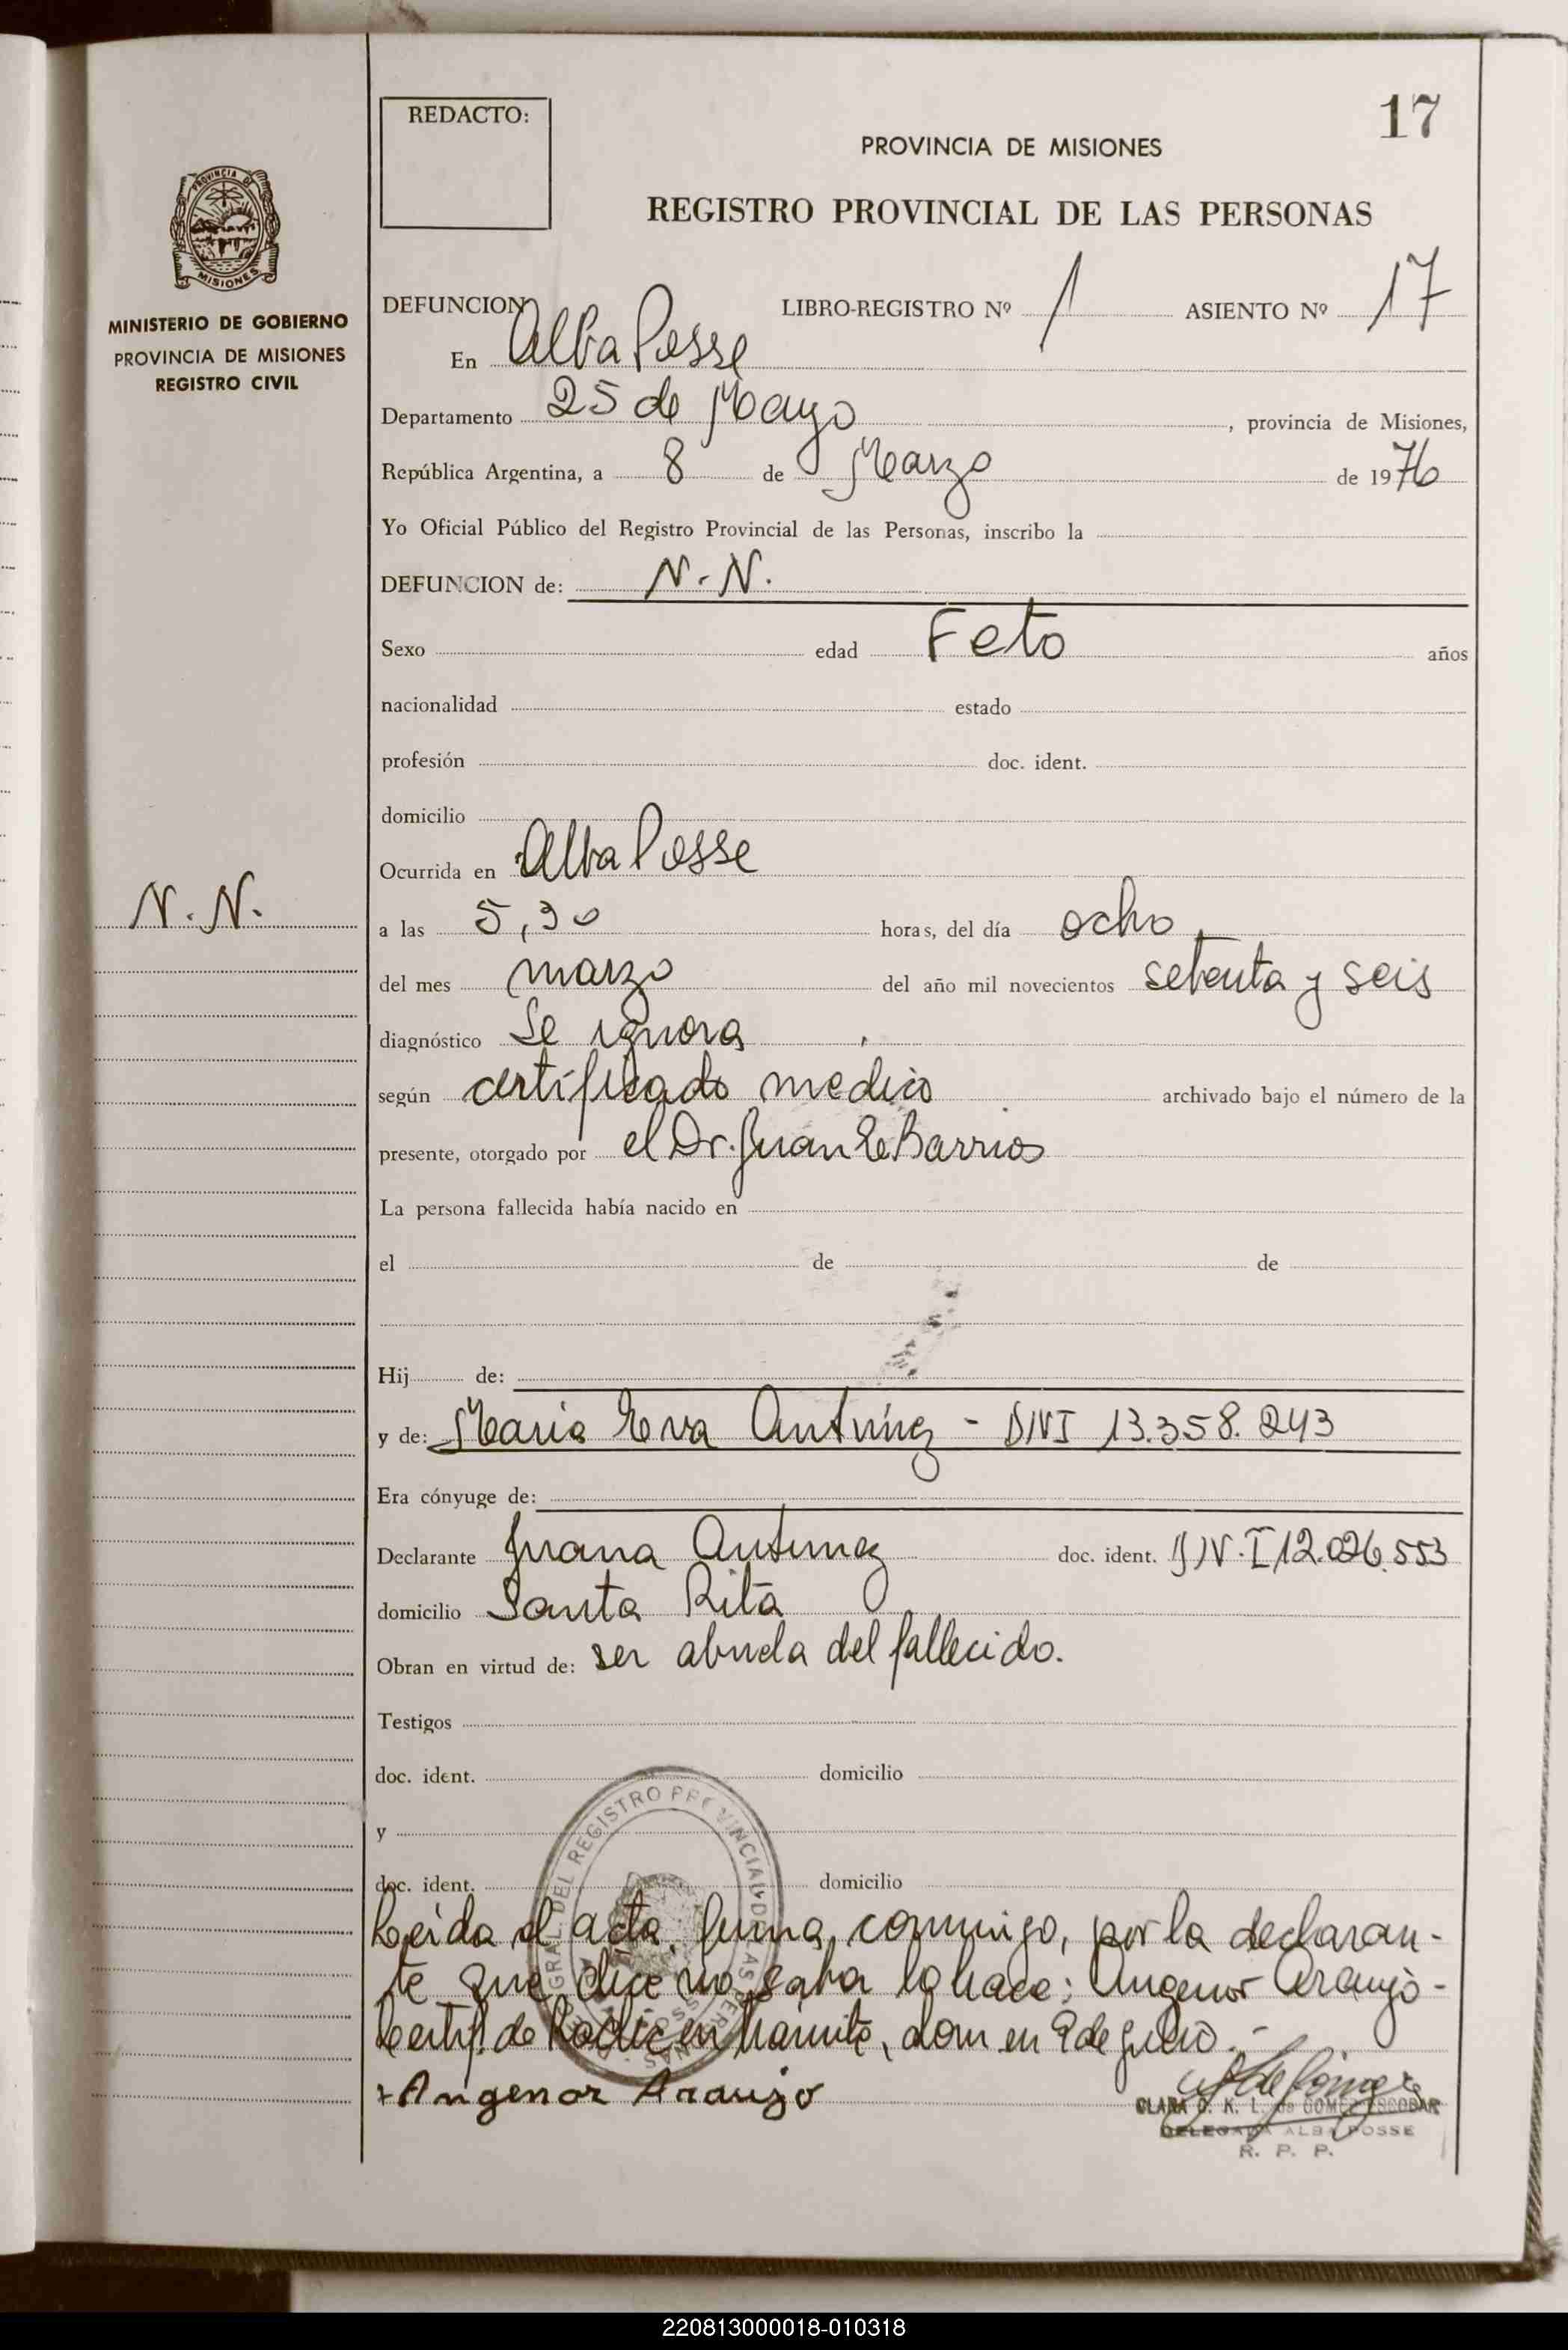 17
REDACTO:
PROVINCIA DE MISIONES
REGISTRO PROVINCIAL DE LAS PERSONAS
PROVINCIA DE
MISIONES
MINISTERIO DE GOBIERNO
PROVINCIA DE MISIONES
REGISTRO CIVIL
DEFUNCION LIBRO-REGISTRO Nº 1 ASIENTO Nº 17
En Alba Posse
Departamento 25 de Mayo, provincia de Misiones,
República Argentina, a 8 de Marzo de 1976
Yo Oficial Público del Registro Provincial de las Personas, inscribo la
DEFUNCION de: N. N.
Sexo edad Feto años
nacionalidad estado
profesión doc. ident.
domicilio
Ocurrida en Alba Posse
N. N.
a las 5,30 horas, del día ocho
del mes marzo del año mil novecientos setenta y seis
diagnóstico Se ignora
según certificado medico archivado bajo el número de la
presente, otorgado por el Dr. Juan E. Barrios
La persona fallecida había nacido en
el de de
Hij de:
y de: Maria Eva Antúnez - DNI 13.358.243
Era cónyuge de:
Declarante Juana Antunez doc. ident. DN.I 12.026.553
domicilio Santa Rita
Obran en virtud de: ser abuela del fallecido.
Testigos
doc. ident. domicilio
y
doc. ident. domicilio
Leida el acta, firma conmigo, por la declaran-
te que dice no saber lo hace: Angenor Araujo -
Certif. de Radic en tramite, dom en 9 de Julio.-
+Angenor Araujo
CLARA C. K. L. de GOMEZ ESCOBAR
DELEGADA ALBA POSSE
R. P. P.
220813000018-010318